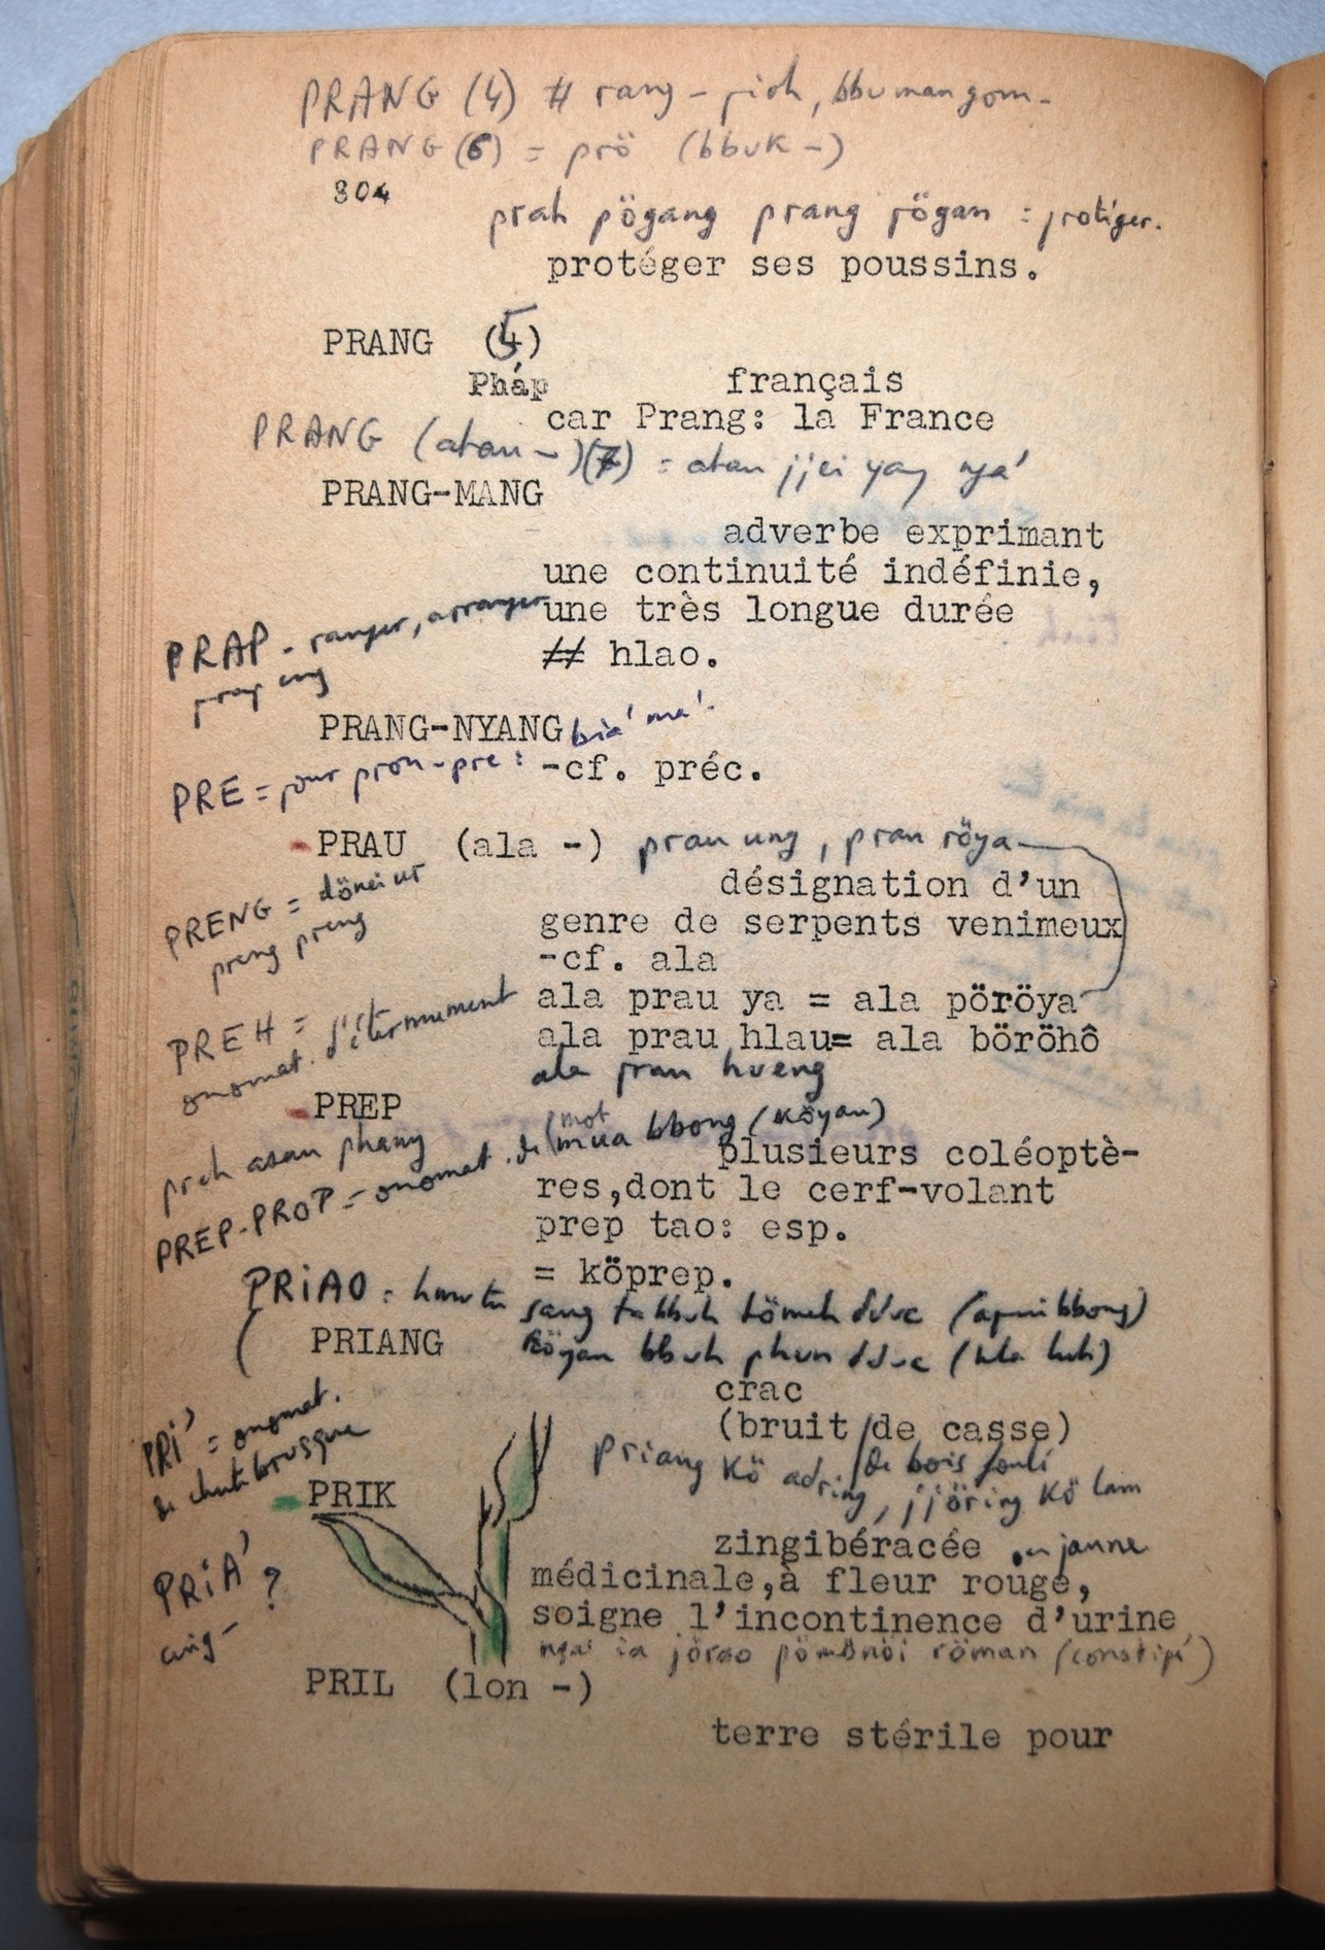 PRANG (4) # rang - jioh, bbu mang gom -
PRANG (6) = prö (bbuk -)
804
prah pögang prang rögan : protéger.
protéger ses poussins.
PRANG (5)
Pháp français
car Prang: la France
PRANG (atau -) (7) = atau jjei yang nyá
PRANG-MANG
adverbe exprimant
une continuité indéfinie,
une très longue durée
## hlao.
PRAP - ranger, arranger
prap ang
PRANG-NYANG biá má.
-cf. préc.
PRE = pour pron-pre :
PRAU (ala -) prau ung, prau röya
désignation d'un
genre de serpents venimeux
-cf. ala
ala prau ya = ala pöröya
ala prau hlau= ala böröhô
ala prau hueng
PRENG = dönei ur
preng preng
PREH = onomat. d'éternuement
preh asau phang
PREP
plusieurs coléoptè-
res,dont le cerf-volant
prep tao: esp.
= köprep.
PREP-PROP = onomat. de (mot mua bbong (köyau)
PRIAO = sang tabbuh tömeh dduc (apui bbong)
PRIANG köyau bbuh phun dduc (hla luh)
crac
(bruit de casse)
de bois
priang kö adring, jjöring kö lam
PRI' = onomat.
de chute brusque
PRIK
zingibéracée ou jaune
médicinale,à fleur rouge,
soigne l'incontinence d'urine
ngai ia jörao pömönöi röman (constipé)
PRIA' ?
ang -
PRIL (lon -)
terre stérile pour